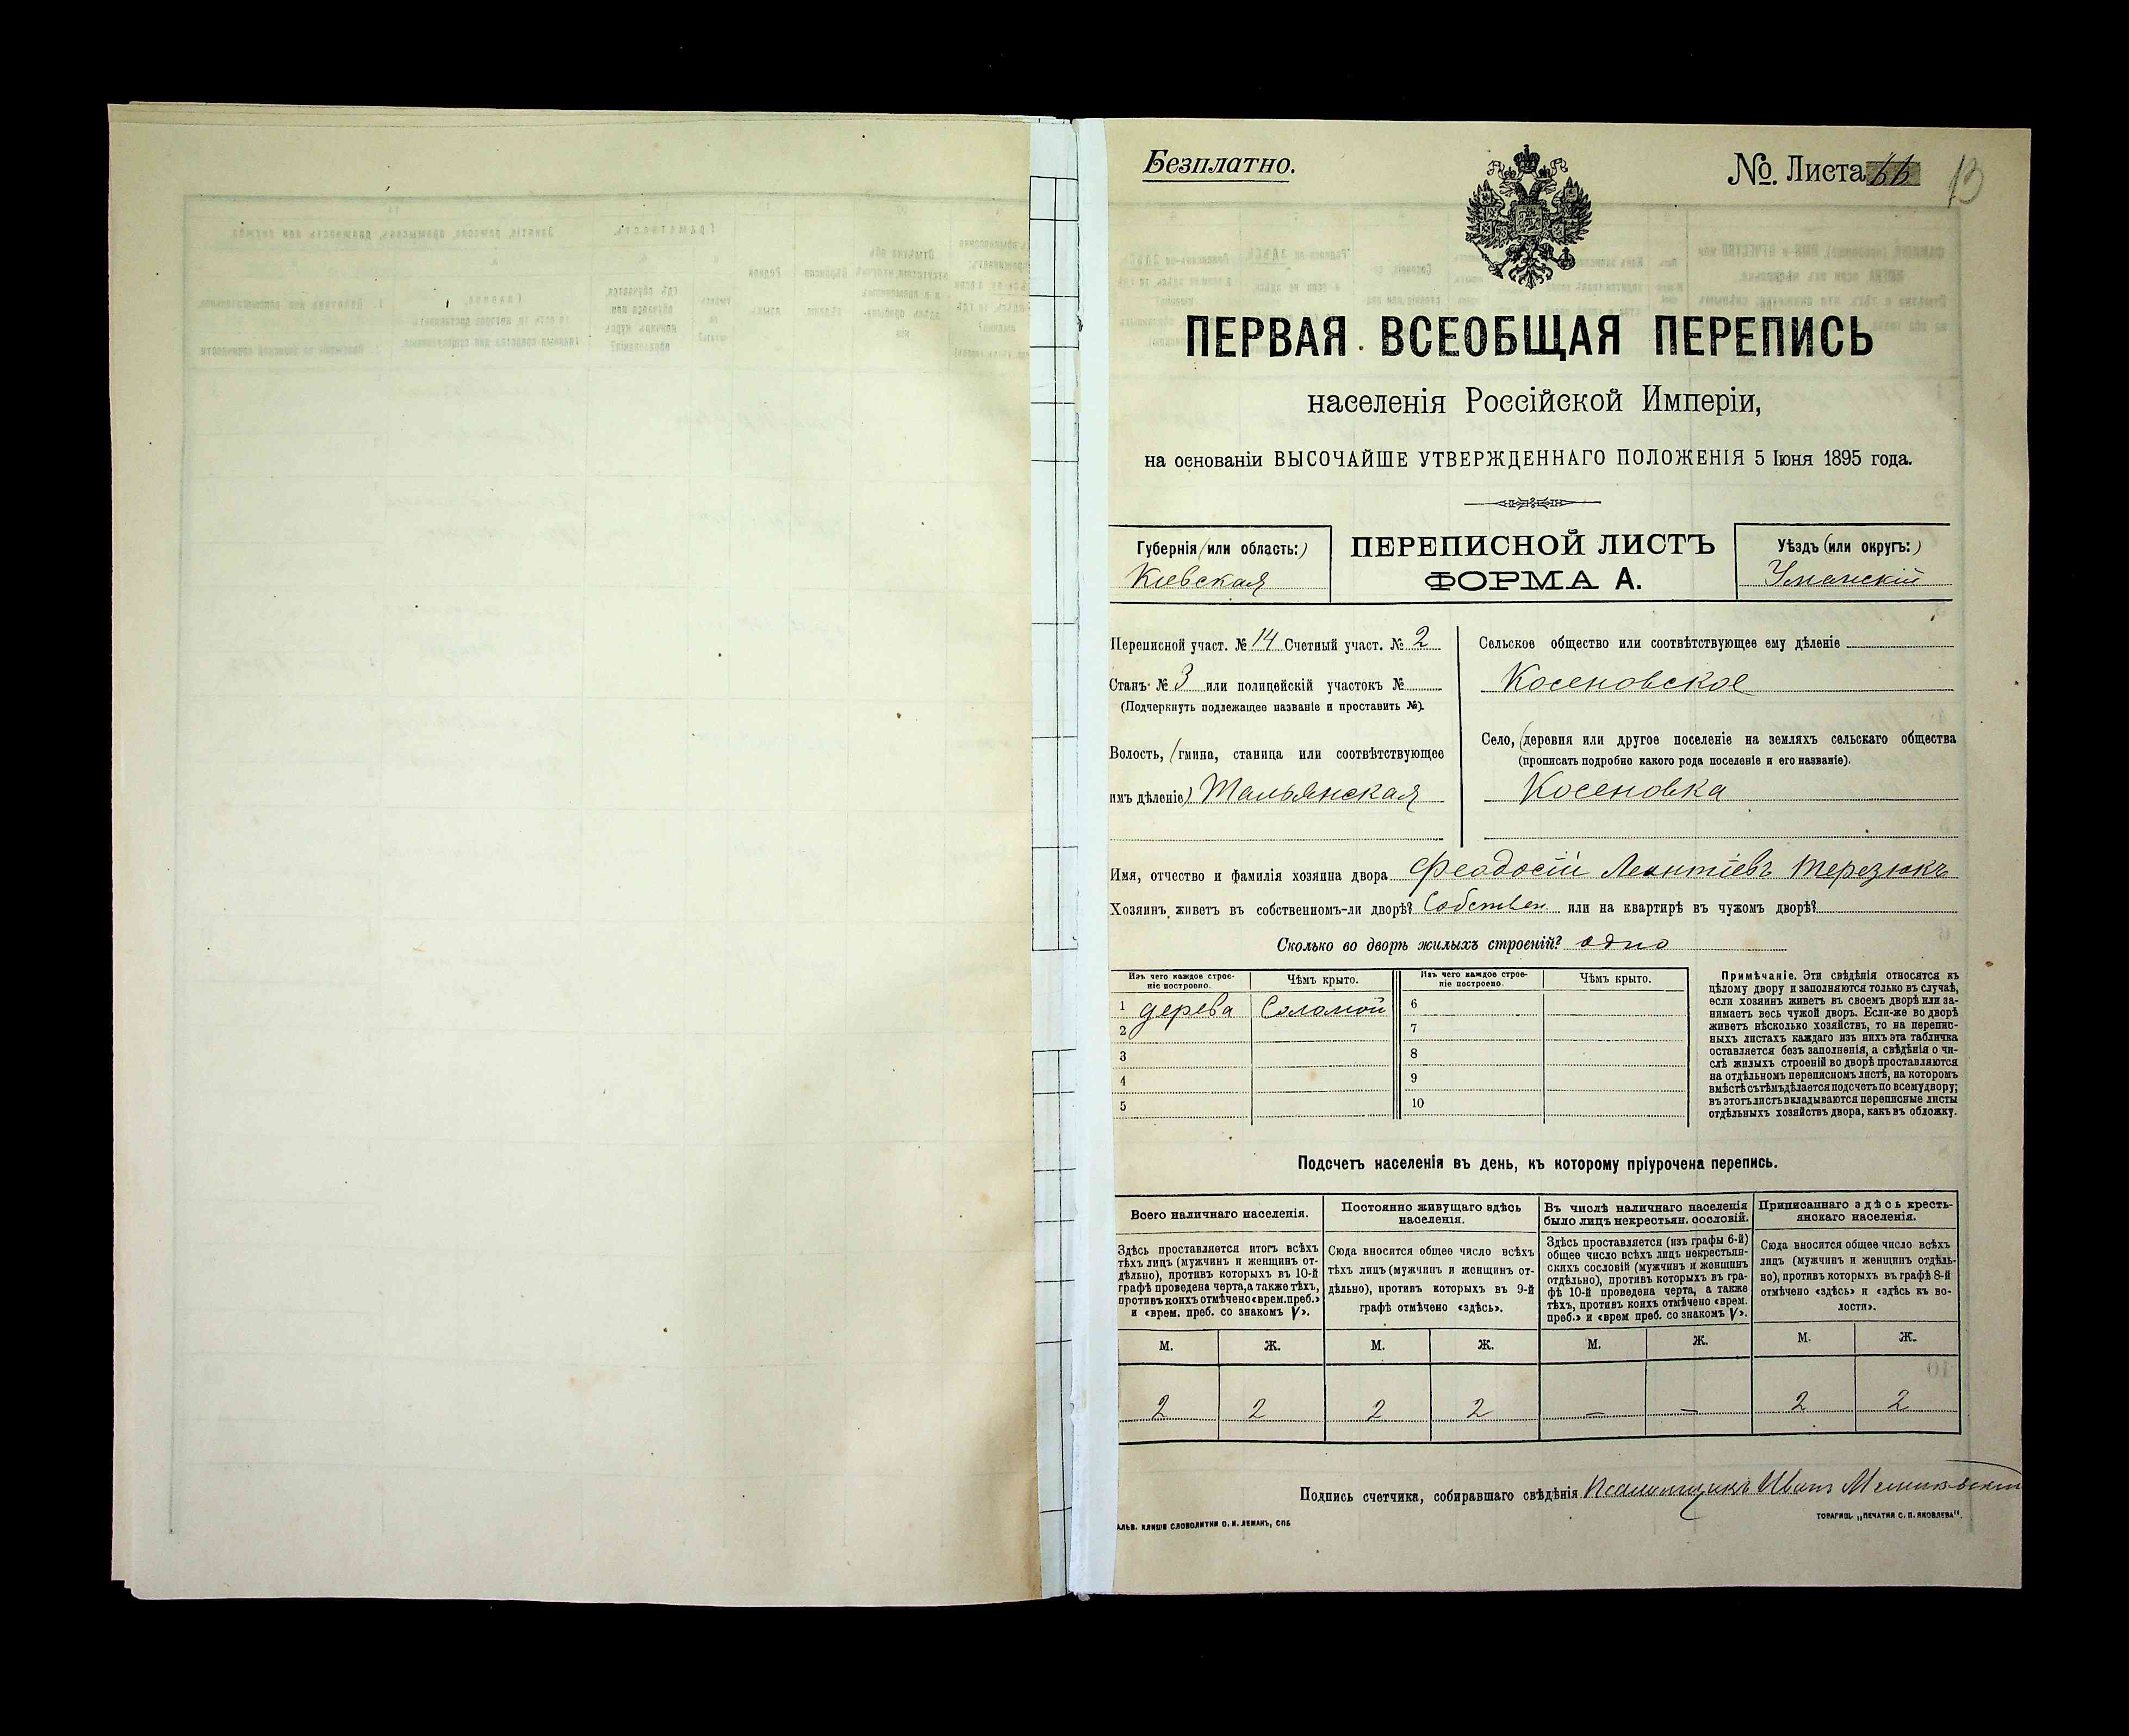 Безплатно.
№. Листа 66 13
ПЕРВАЯ ВСЕОБЩАЯ ПЕРЕПИСЬ
населенія Россійской Имперіи,
на основаніи ВЫСОЧАЙШЕ УТВЕРЖДЕННАГО ПОЛОЖЕНІЯ 5 Іюня 1895 года.
Губернія (или область:)
Кіевская
ПЕРЕПИСНОЙ ЛИСТЪ
ФОРМА А.
Уѣздъ (или округъ:)
Уманскій
Переписной участ. № 14 Счетный участ. № 2
Станъ № 3 или полицейскій участокъ №
(Подчеркнуть подлежащее названіе и проставить №).
Волость, (гмина, станица или соотвѣтствующее
имъ дѣленіе) Тальянская
Сельское общество или соотвѣтствующее ему дѣленіе
Косеновское
Село, (деревня или другое поселеніе на земляхъ сельскаго общества
(прописать подробно какого рода поселеніе и его названіе).
Косеновка
Имя, отчество и фамилія хозяина двора Феодосій Леонтіевъ Терезюкъ
Хозяинъ живетъ въ собственномъ-ли дворѣ? Собствен. или на квартирѣ въ чужомъ дворѣ?
Сколько во дворѣ жилыхъ строеній? одно
Изъ чего каждое строе-
ніе построено.
Чѣмъ крыто.
Изъ чего каждое строе-
ніе построено.
Чѣмъ крыто.
1 дерева Соломой 6
2 7
3 8
4 9
5 10
Примѣчаніе. Эти свѣдѣнія относятся къ
цѣлому двору и заполняются только въ случаѣ,
если хозяинъ живетъ въ своемъ дворѣ или за-
нимаетъ весь чужой дворъ. Если-же во дворѣ
живетъ нѣсколько хозяйствъ, то на перепис-
ныхъ листахъ каждаго изъ нихъ эта табличка
оставляется безъ заполненія, а свѣдѣнія о чи-
слѣ жилыхъ строеній во дворѣ проставляются
на отдѣльномъ переписномъ листѣ, на которомъ
вмѣстѣ съ тѣмъ дѣлается подсчетъ по всему двору;
въ этотъ листъ вкладываются переписные листы
отдѣльныхъ хозяйствъ двора, какъ въ обложку.
Подсчетъ населенія въ день, къ которому пріурочена перепись.
Всего наличнаго населенія.
Здѣсь проставляется итогъ всѣхъ
тѣхъ лицъ (мужчинъ и женщинъ от-
дѣльно), противъ которыхъ въ 10-й
графѣ проведена черта, а также тѣхъ,
противъ коихъ отмѣчено «врем. преб.»
и «врем. преб. со знакомъ V».
Постоянно живущаго здѣсь
населенія.
Сюда вносится общее число всѣхъ
тѣхъ лицъ (мужчинъ и женщинъ от-
дѣльно), противъ которыхъ въ 9-й
графѣ отмѣчено «здѣсь».
Въ числѣ наличнаго населенія
было лицъ некрестьян. сословій.
Здѣсь проставляется (изъ графы 6-й)
общее число всѣхъ лицъ некрестьян-
скихъ сословій (мужчинъ и женщинъ
отдѣльно), противъ которыхъ въ гра-
фѣ 10-й проведена черта, а также
тѣхъ, противъ коихъ отмѣчено «врем.
преб.» и «врем преб. со знакомъ V».
Приписаннаго здѣсь кресть-
янскаго населенія.
Сюда вносится общее число всѣхъ
лицъ (мужчинъ и женщинъ отдѣль-
но), противъ которыхъ въ графѣ 8-й
отмѣчено «здѣсь» и «здѣсь къ во-
лости».
М. Ж. М. Ж. М. Ж. М. Ж.
2 2 2 2 — — 2 2
Подпись счетчика, собиравшаго свѣдѣнія Псаломщикъ Иванъ
ГАЛЬВ. КЛИШЕ СЛОВОЛИТНИ О. И. ЛЕМАНЪ, СПБ
ТОВАРИЩ. „ПЕЧАТНЯ С. П. ЯКОВЛЕВА".